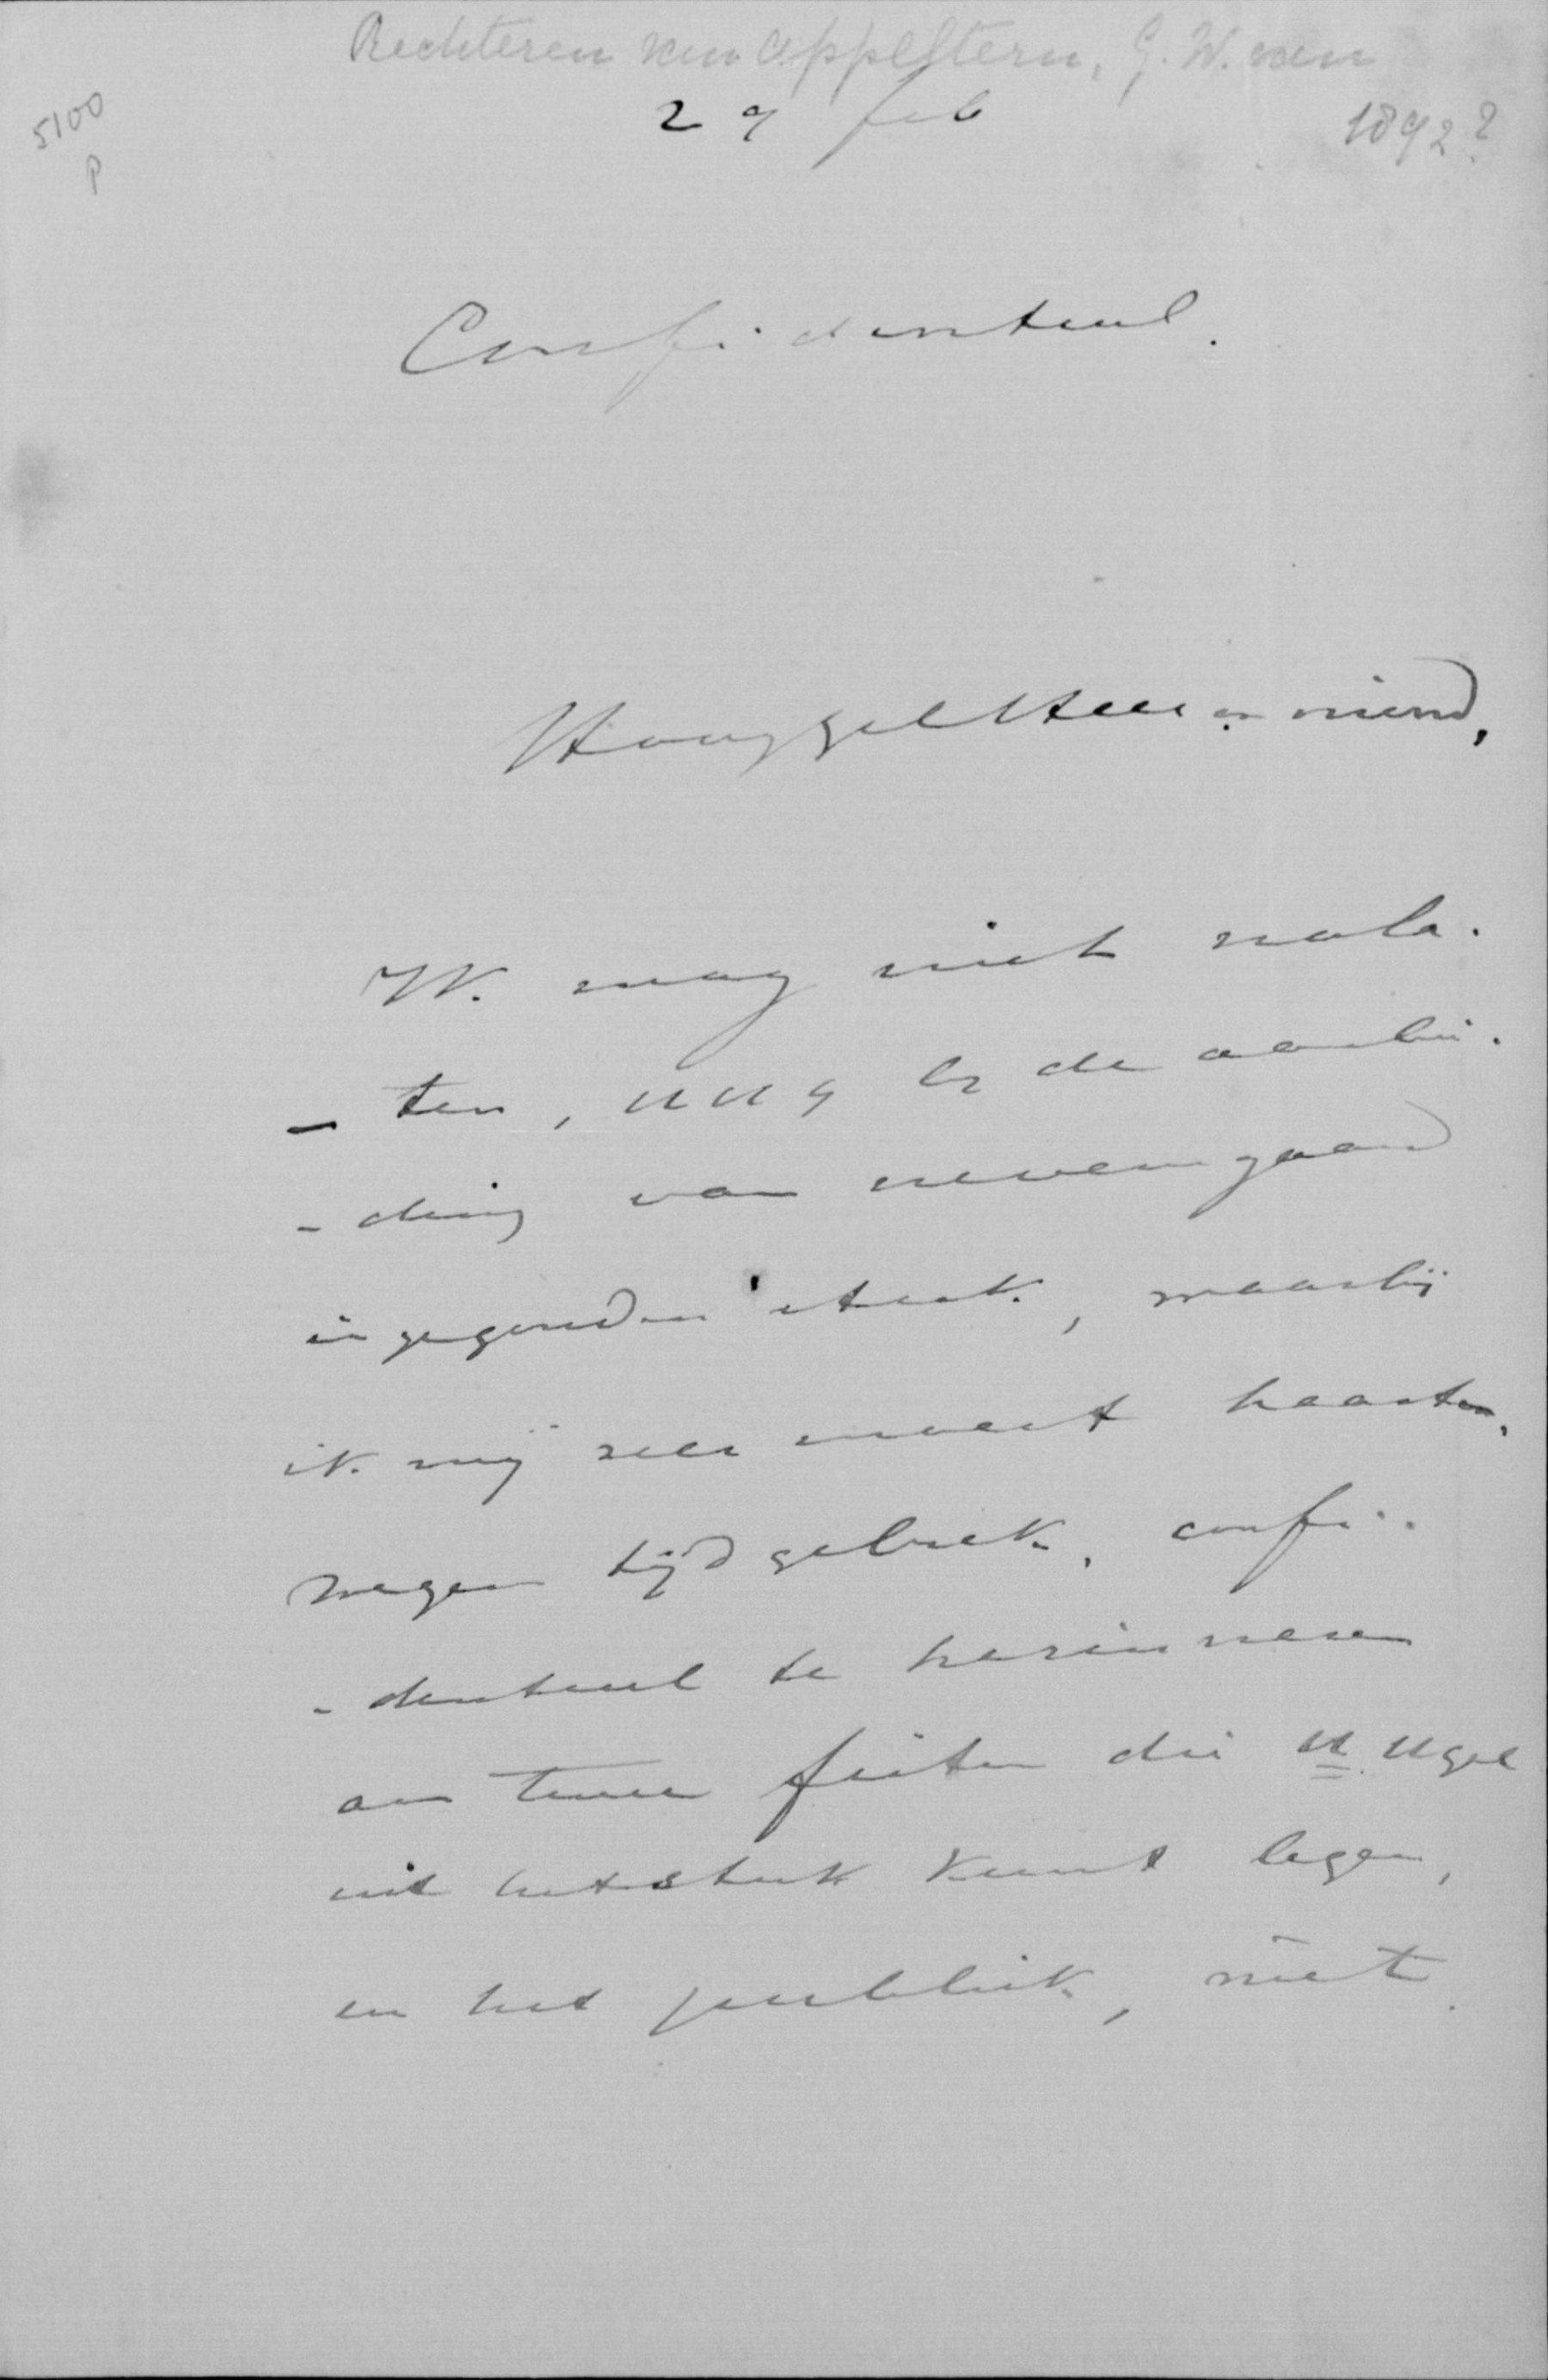 Rechteren van Appeltern, G. W. van
29 feb
1892?
5100
P
Confidentieel.
Hooggel Heer en vriend,
Ik mag niet nala-
- ten, UHG bij de aanbie-
- ding van nevensgaand
ingezonden stuk, waarbij
ik mij zeer moest haasten,
wegens tijdgebrek, confi-
- dentieel te herinneren
aan twee feiten die U. HGel
uit het stuk kunt lezen,
en het publiek, niet.